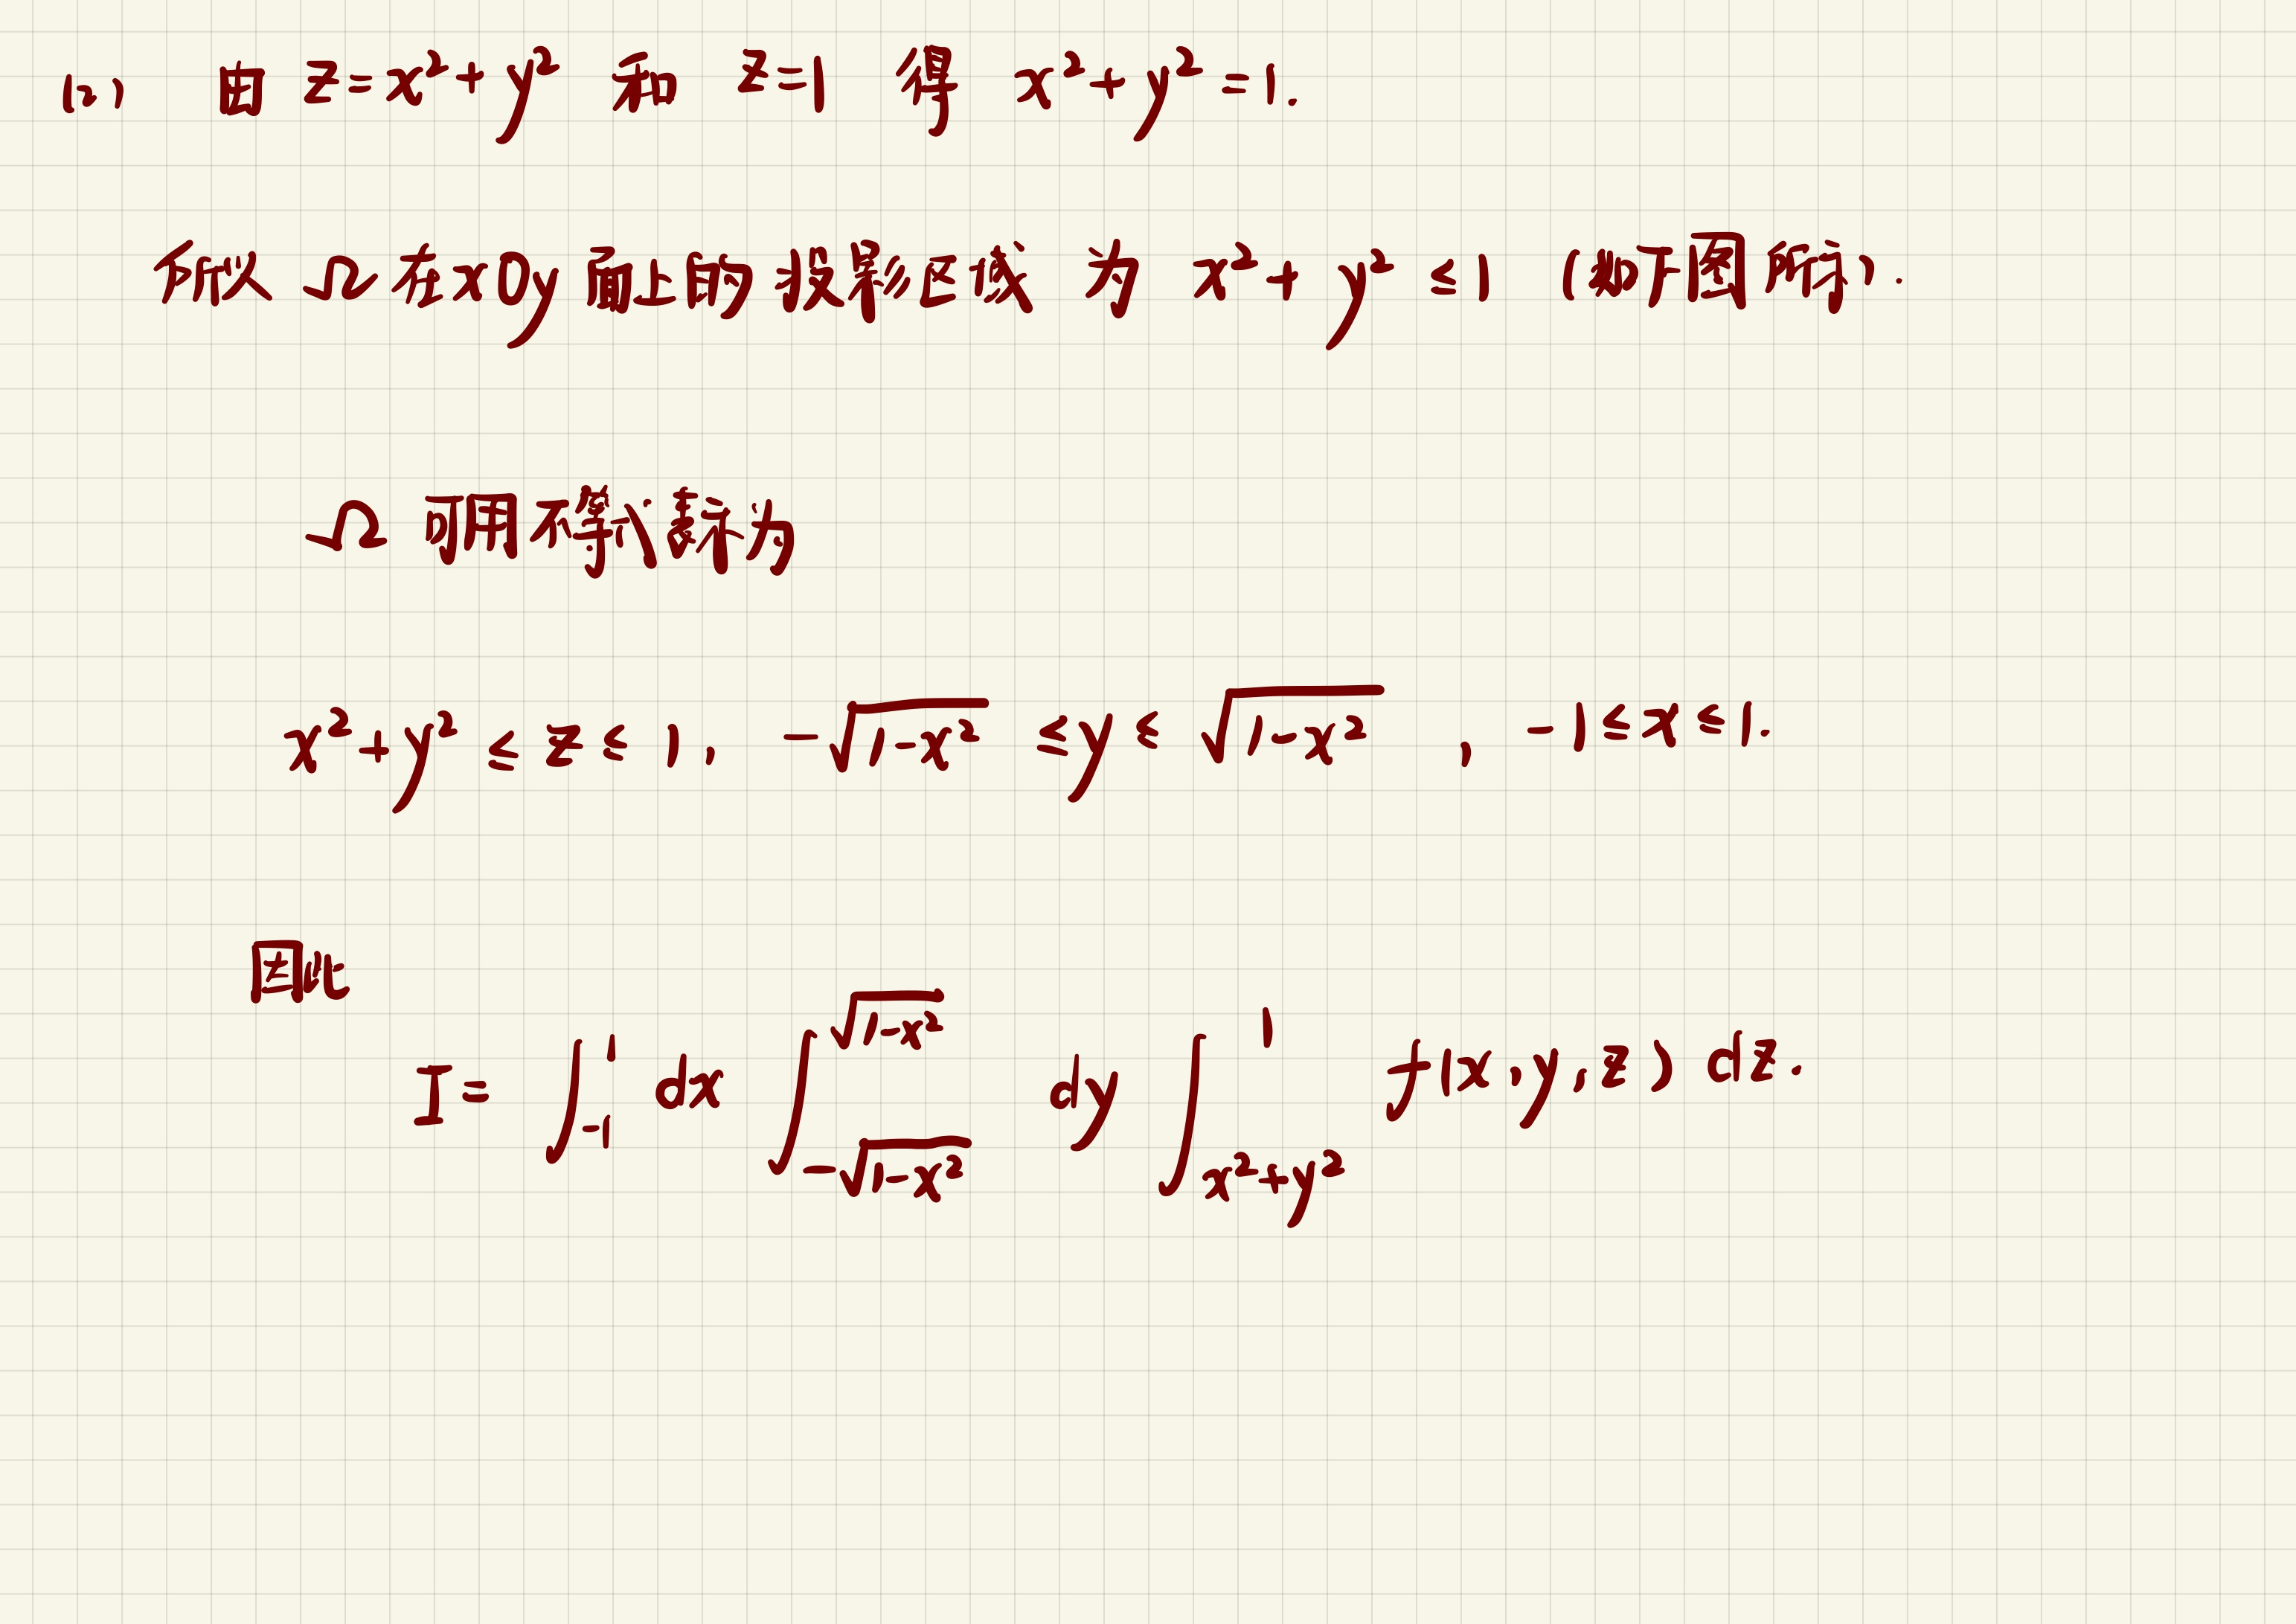 (2) 由 z=x²+y² 和 z=1 得 x²+y²=1.
所以 Ω 在xOy面上的投影区域 为 x²+y² ≤1 (如下图所示).
Ω 可用不等式表示为
x²+y² ≤ z ≤ 1, -√(1-x²) ≤y≤ √(1-x²) , -1≤x≤1.
因此
I= ∫_{-1}^{1} dx ∫_{-√(1-x²)}^{√(1-x²)} dy ∫_{x²+y²}^{1} f(x,y,z) dz.